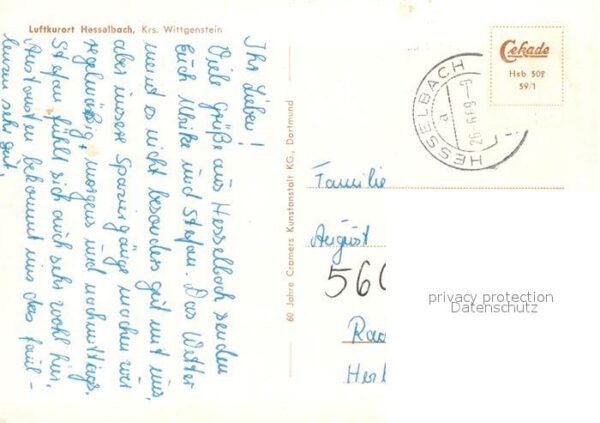 Luftkurort Hesselbach, Krs. Wittgenstein
Ihr Lieben!
Viele Grüße aus Hesselbach senden
Euch Ulrike und Stefan. Das Wetter
meint es nicht besonders gut mit uns,
aber unsere Spaziergänge machen wir
regelmäßig, morgens und nachmittags.
Stefan fühlt sich auch sehr wohl hier.
Ansonsten bekommt uns das Faul-
lenzen sehr gut.
60 Jahre Cramers Kunstanstalt KG., Dortmund
Cekade
Hsb 502
59/1
HESSELBACH
a
Familie
August
560
Her
privacy protection
Datenschutz